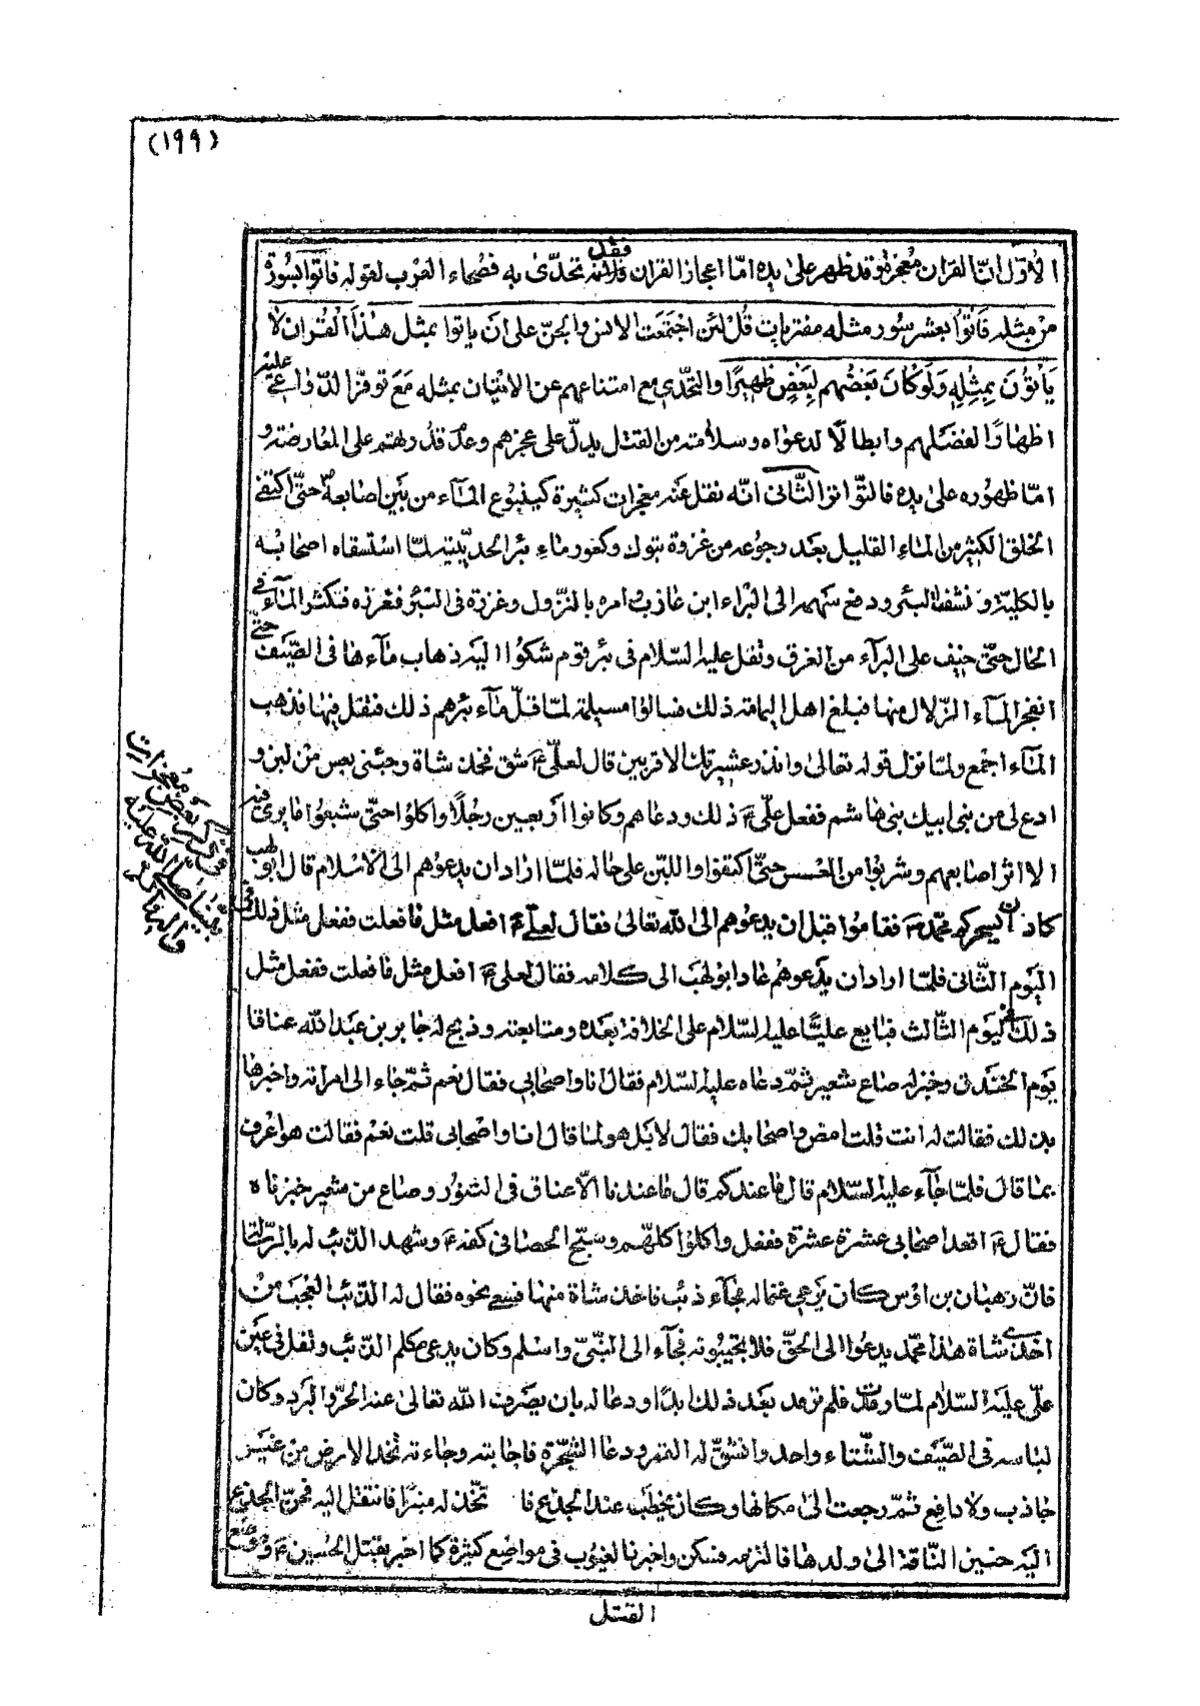 (١٩٩)
الاوّل انّ القران معجزة وقد ظهر على يده امّا اعجاز القران فلانّه تحدّى به فصحاء العرب لقوله فاتوا بسورة
من مثله فاتوا بعشر سور مثله مفتريات قل لئن اجتمعت الانس والجنّ على ان ياتوا بمثل هذا القران لا
ياتون بمثله ولو كان بعضهم لبعض ظهيرًا والتحدّي مع امتناعهم عن الاتيان بمثله مع توفّر الدّواعي عليه
اظهارًا لفضلهم وابطالًا لدعواه وسلامته من القتل يدلّ على عجزهم وعدم قدرتهم على المعارضة و
امّا ظهوره على يده فالتّواتر الثّاني انّه نقل عنه معجزات كثيرة كينبوع المآء من بين اصابعه حتّى اكتفى
الخلق الكثير من الماء القليل بعد رجوعه من غزوة تبوك وكغور ماء بئر الحديبية لمّا استسقاه اصحابه
بالكلية ونشفت البئر ودفع سهمه الى البراء ابن عازب امره بالنّزول وغرزه في البئر فغرزه فكثر المآء في
الحال حتّى خيف على البرآء من الغرق وتفل عليه السّلام في بئر قوم شكوا اليه ذهاب مآءها في الصّيف حتّى
انفجر المآء الزّلال منها فبلغ اهل اليمامة ذلك فسالوا مسيلمة لمّا قلّ مآء بئرهم ذلك فتفل فيها فذهب
المآء اجمع ولمّا نزل قوله تعالى وانذر عشيرتك الاقربين قال لعلي ع شق فخذ شاة وجئني بعس من لبن و
ادع لي من بني ابيك بني هاشم ففعل عليّ ع ذلك ودعاهم وكانوا اربعين رجلًا واكلوا حتّى شبعوا ما يرى فيه
الا اثر اصابعهم وشربوا من العس حتّى اكتفوا واللبن على حاله فلمّا اراد ان يدعوهم الى الاسلام قال ابو لهب
كاد ان يسحركم محمّد ص فقاموا قبل ان يدعوهم الى الله تعالى فقال لعلي ع افعل مثل ما فعلت ففعل مثل ذلك في
اليوم الثّاني فلمّا اراد ان يدعوهم عاد ابو لهب الى كلامه فقال لعلي ع افعل مثل ما فعلت ففعل مثل
ذلك في اليوم الثّالث فبايع عليّا عليه السّلام على الخلافة بعده ومتابعته وذبح له جابر بن عبد الله عناقا
يوم الخندق وخبز له صاع شعير ثمّ دعاه عليه السّلام فقال انا واصحابي فقال نعم ثمّ جاء الى امراته واخبرها
بذلك فقالت له انت قلت امض واصحابك فقال لا بل هو لمّا قال انا واصحابي قلت نعم فقالت هو اعرف
بما قال فلمّا جآء عليه السّلام قال ما عندكم قال ما عندنا الّا عناق في التنور وصاع من شعير خبزناه
فقال ع اقعد اصحابي عشرة عشرة ففعل واكلوا كلهّم وسبّح الحصا في كفه ع وشهد الذّئب له بالرّسالة
فانّ رهبان بن اوس كان يرعى غنما له فجآء ذئب فاخذ شاة منها فسعى نحوه فقال له الذّئب العجب من
اخذي شاة هذا محمّد يدعوا الى الحقّ فلا تجيبونه فجآء الى النّبيّ واسلم وكان يدعى مكلم الذّئب وتفل في عين
عليّ عليه السّلام لمّا رمدت فلم ترمد بعد ذلك ابدًا ودعا له بان يصرف الله تعالى عنه الحرّ والبرد وكان
لباسه في الصّيف والشّتاء واحد وانشقّ له القمر ودعا الشّجرة فاجابته وجاءته تخد الارض من غير
جاذب ولا دافع ثمّ رجعت الى مكانها وكان يخطب عند الجذع فاتّخذ له منبرًا فانتقل اليه فحنّ الجذع
اليه حنين النّاقة الى ولدها فالتزمه فسكن واخبر بالغيوب في مواضع كثيرة كما اخبر بقتل الحسين ع وموضع
القتل
في ذكر بعض معجزات
نبيّنا صلى الله عليه
واله وسلم